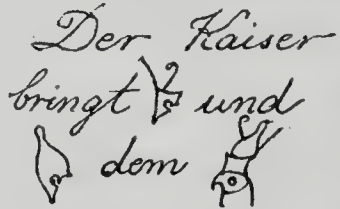 Der Kaiser
bringt und
dem